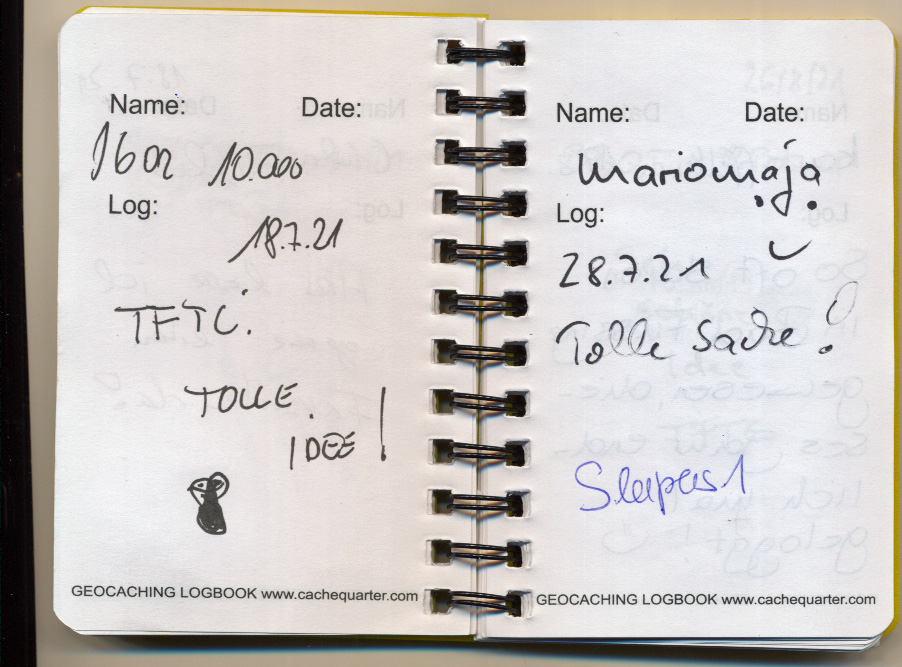 Name: Date:
10.000
Log:
18.7.21
TFTC.
TOLLE
IDEE!
GEOCACHING LOGBOOK www.cachequarter.com
Name: Date:
mariomaja
Log:
28.7.21
Tolle Sache!
GEOCACHING LOGBOOK www.cachequarter.com